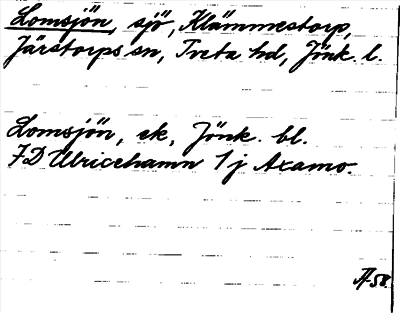 Lomsjön, sjö, Klämmestorp,
Järstorps sn, Tveta hd, Jönk. l.
Lomsjön, ek, Jönk. bl.
7D Ulricehamn 1j Axamo.
58